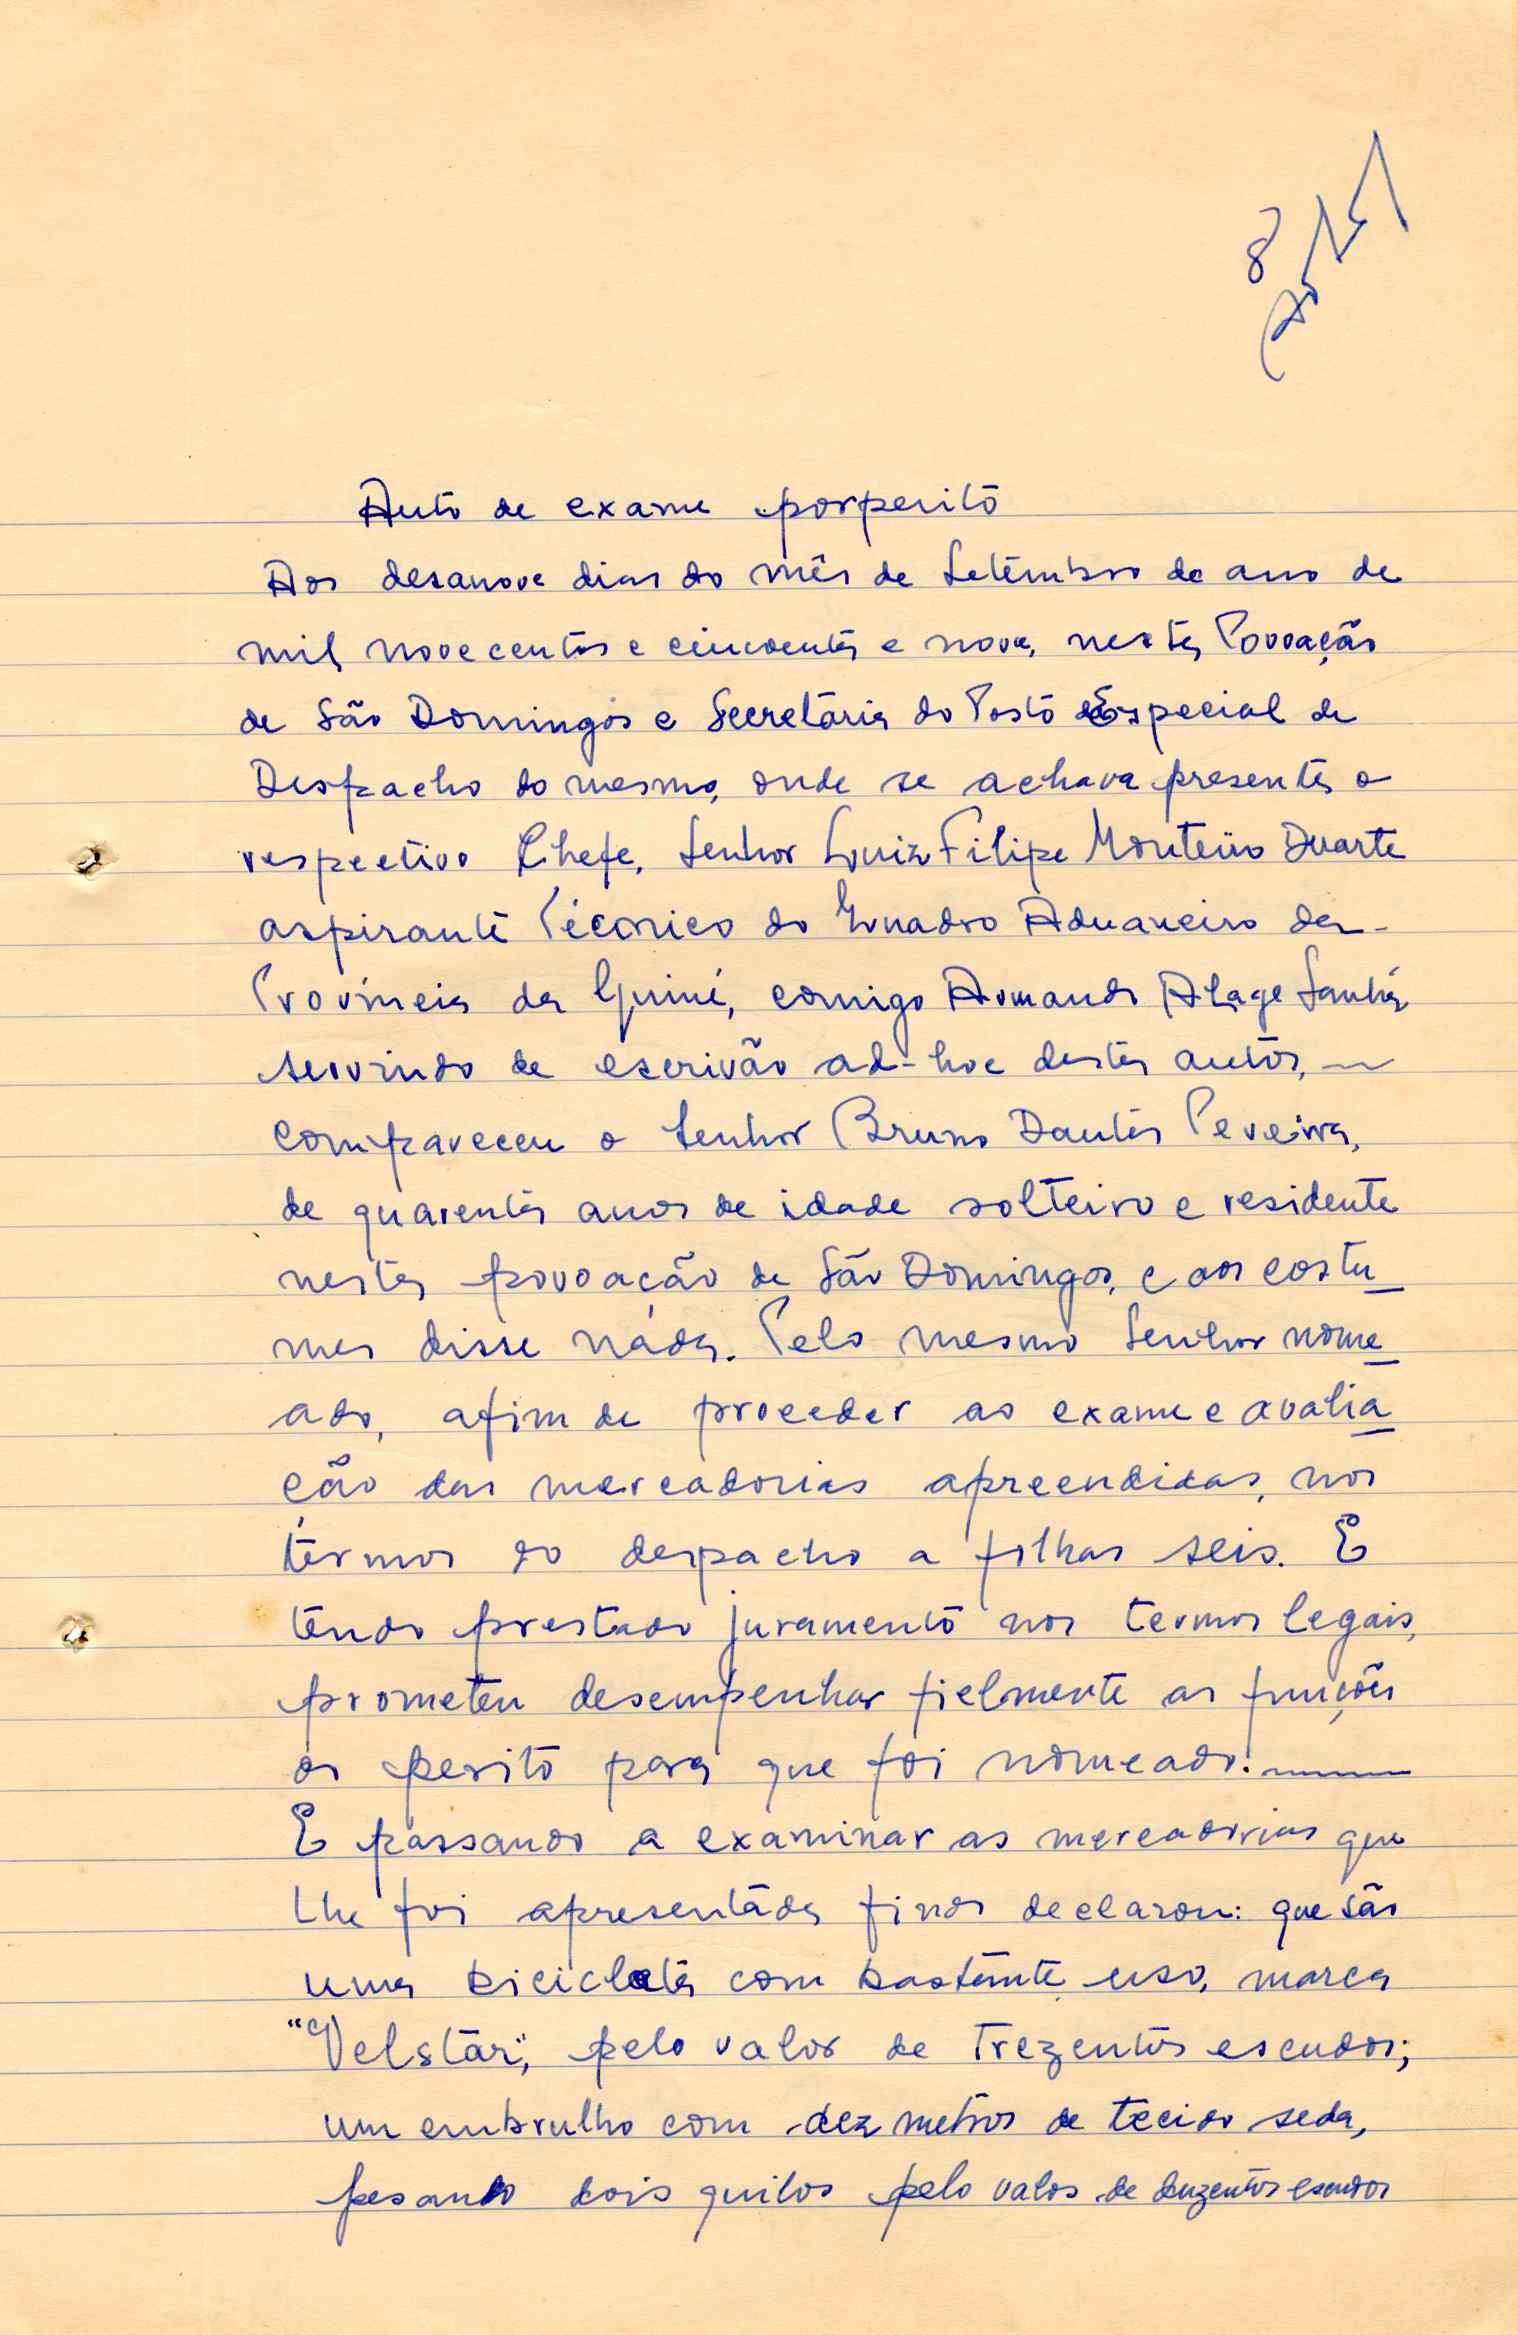 8
Auto de exame por perito
Aos desanove dias do mês de Setémbro de ano de
mil novecentos e cincoenta e nove, nesta Povoação
de São Domingos e Secretária do Posto Especial de
Despacho do mesmo, onde se achava presente o
respectivo Chefe, Senhor Luiz Filipe Monteiro Duarte
aspirante Técnico do Quadro Aduaneiro da
Província da Guiné, comigo Armando Alage Sanhá
servindo de escrivão ad-hoc destes autos,
compareceu o Senhor Bruno Dantas Pereira,
de quarenta anos de idade solteiro e residente
nesta povoação de São Domingos, e aos costu_
mes disse náda. Pelo mesmo Senhor nome_
ado, afim de proceder ao exame e avalia_
ção das mercadorias apreendidas, nos
térmos do despacho a folhas seis. E
tendo prestado juramento nos termos legais,
prometeu desempenhar fielmente as funções
de perito para que foi nomeado.
E passando a examinar as mercadorias que
lhe foi apresentáda findo declarou: que são
uma bicicleta com bastante uso, marca
"Velstar", pelo valor de trezentos escudos;
um embrulho com dez metros de tecido seda,
pesando dois quilos pelo valor de duzentos escudos